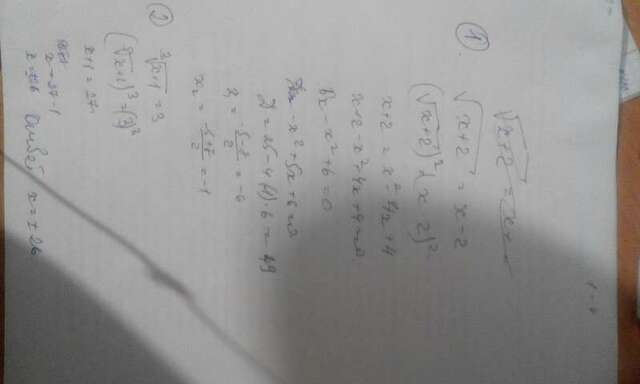 ①
√x+2 = x
√x+2 = x-2
(√x+2)² = (x-2)²
x+2 = x²-4x+4
x+2-x²+4x+4=0
5x-x²+6=0
-x²+5x+6=0
D=25-4·(-1)·6=49
x₁ = -5-7/2 = -6
x₂ = -5+7/2 = -1
②
³√x+1 = 3
(³√x+1)³=(3)³
x+1=27
x=27-1
x=±26 Ответ x=±26